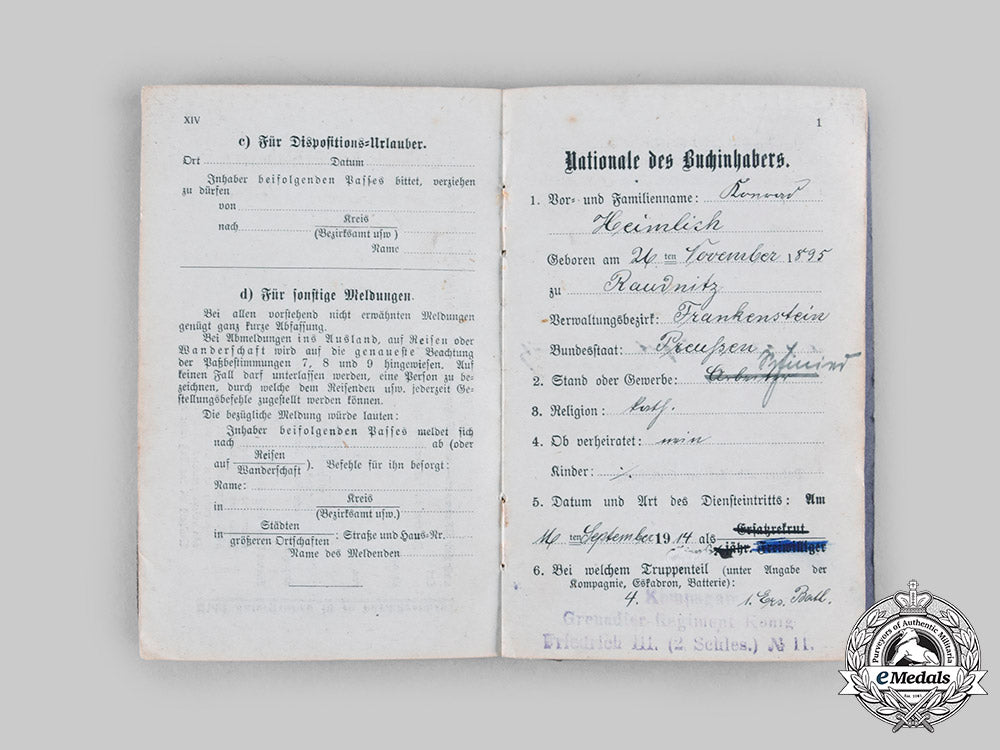 XIV
c) Für Dispositions-Urlauber.
Ort Datum
Inhaber beifolgenden Passes bittet, verziehen
zu dürfen
von
nach Kreis
(Bezirksamt usw)
Name
d) Für sonstige Meldungen.
Bei allen vorstehend nicht erwähnten Meldungen
genügt ganz kurze Abfassung.
Bei Abmeldungen ins Ausland, auf Reisen oder
Wanderschaft wird auf die genaueste Beachtung
der Paßbestimmungen 7, 8 und 9 hingewiesen. Auf
keinen Fall darf unterlassen werden, eine Person zu be-
zeichnen, durch welche dem Reisenden usw. jederzeit Ge-
stellungsbefehle zugestellt werden können.
Die bezügliche Meldung würde lauten:
Inhaber beifolgenden Passes meldet sich
nach ab (oder
auf Reisen
Wanderschaft). Befehle für ihn besorgt:
Name:
in Kreis
(Bezirksamt usw.)
in Städten
größeren Ortschaften : Straße und Haus-Nr.
Name des Meldenden
1
Nationale des Buchinhabers.
1. Vor- und Familienname: Konrad
Heimlich
Geboren am 26 ten November 1895
zu Raudnitz
Verwaltungsbezirk: Frankenstein
Bundesstaat: Preußen
2. Stand oder Gewerbe: Arbeiter Schmied
3. Religion: kath.
4. Ob verheiratet: nein
Kinder: ./.
5. Datum und Art des Diensteintritts: Am
ten September 1914 als Ersatzrekrut
jähr. Freiwilliger
6. Bei welchem Truppenteil (unter Angabe der
Kompagnie, Eskadron, Batterie):
4. Kompagnie 1. Ers. Batl.
Grenadier-Regiment König
Friedrich III. (2 Schles.) № 11.
Purveyors of Authentic Militaria
eMedals